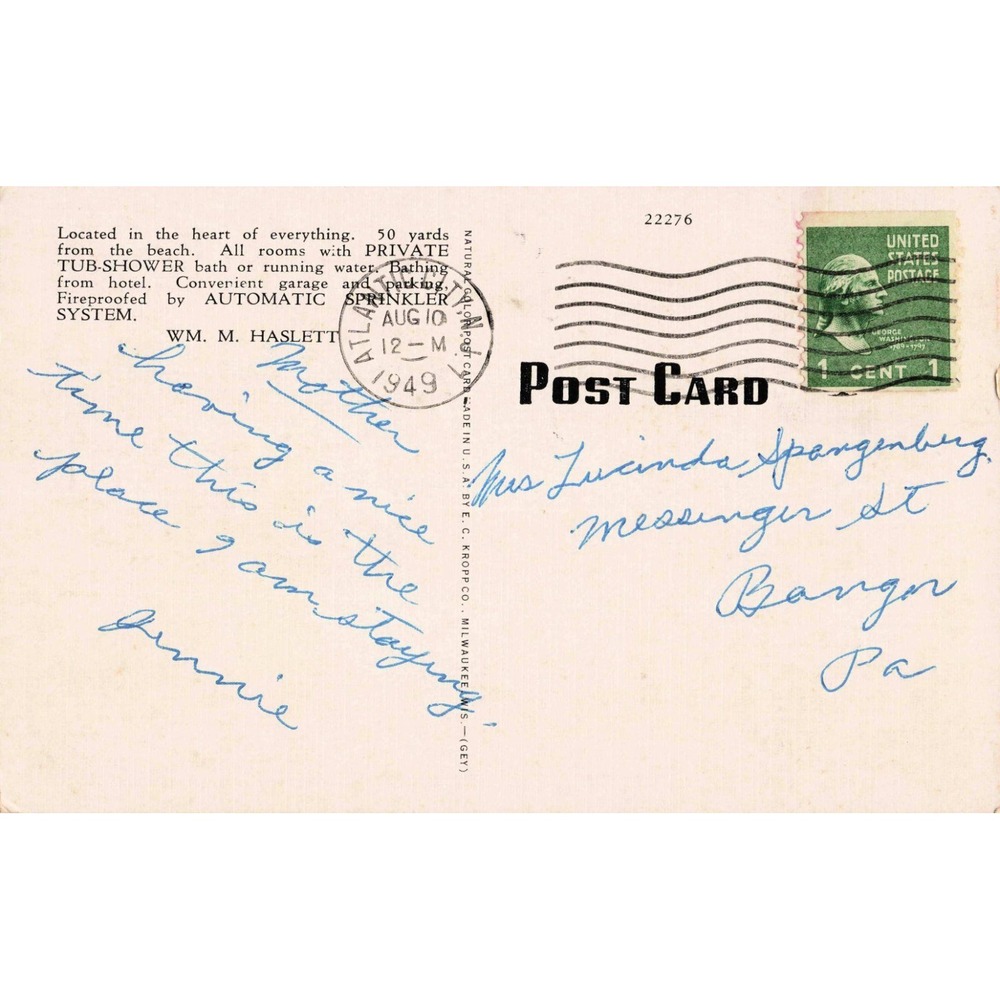 Located in the heart of everything. 50 yards
from the beach. All rooms with PRIVATE
TUB-SHOWER bath or running water. Bathing
from hotel. Convenient garage and parking.
Fireproofed by AUTOMATIC SPRINKLER
SYSTEM.
WM. M. HASLETT
Mother
having a nice
time this is the
place I am staying.
Jennie
NATURAL COLOR POST CARD MADE IN U.S.A. BY E. C. KROPP CO., MILWAUKEE, WIS.—(GEY)
ATLANTIC CITY, N.J.
AUG 10
12—M
1949
22276
UNITED
STATES
POSTAGE
GEORGE
WASHINGTON
1789-1797
1 CENT 1
POST CARD
Mrs Lucinda Spangenburg
Messenger St
Bangor
Pa